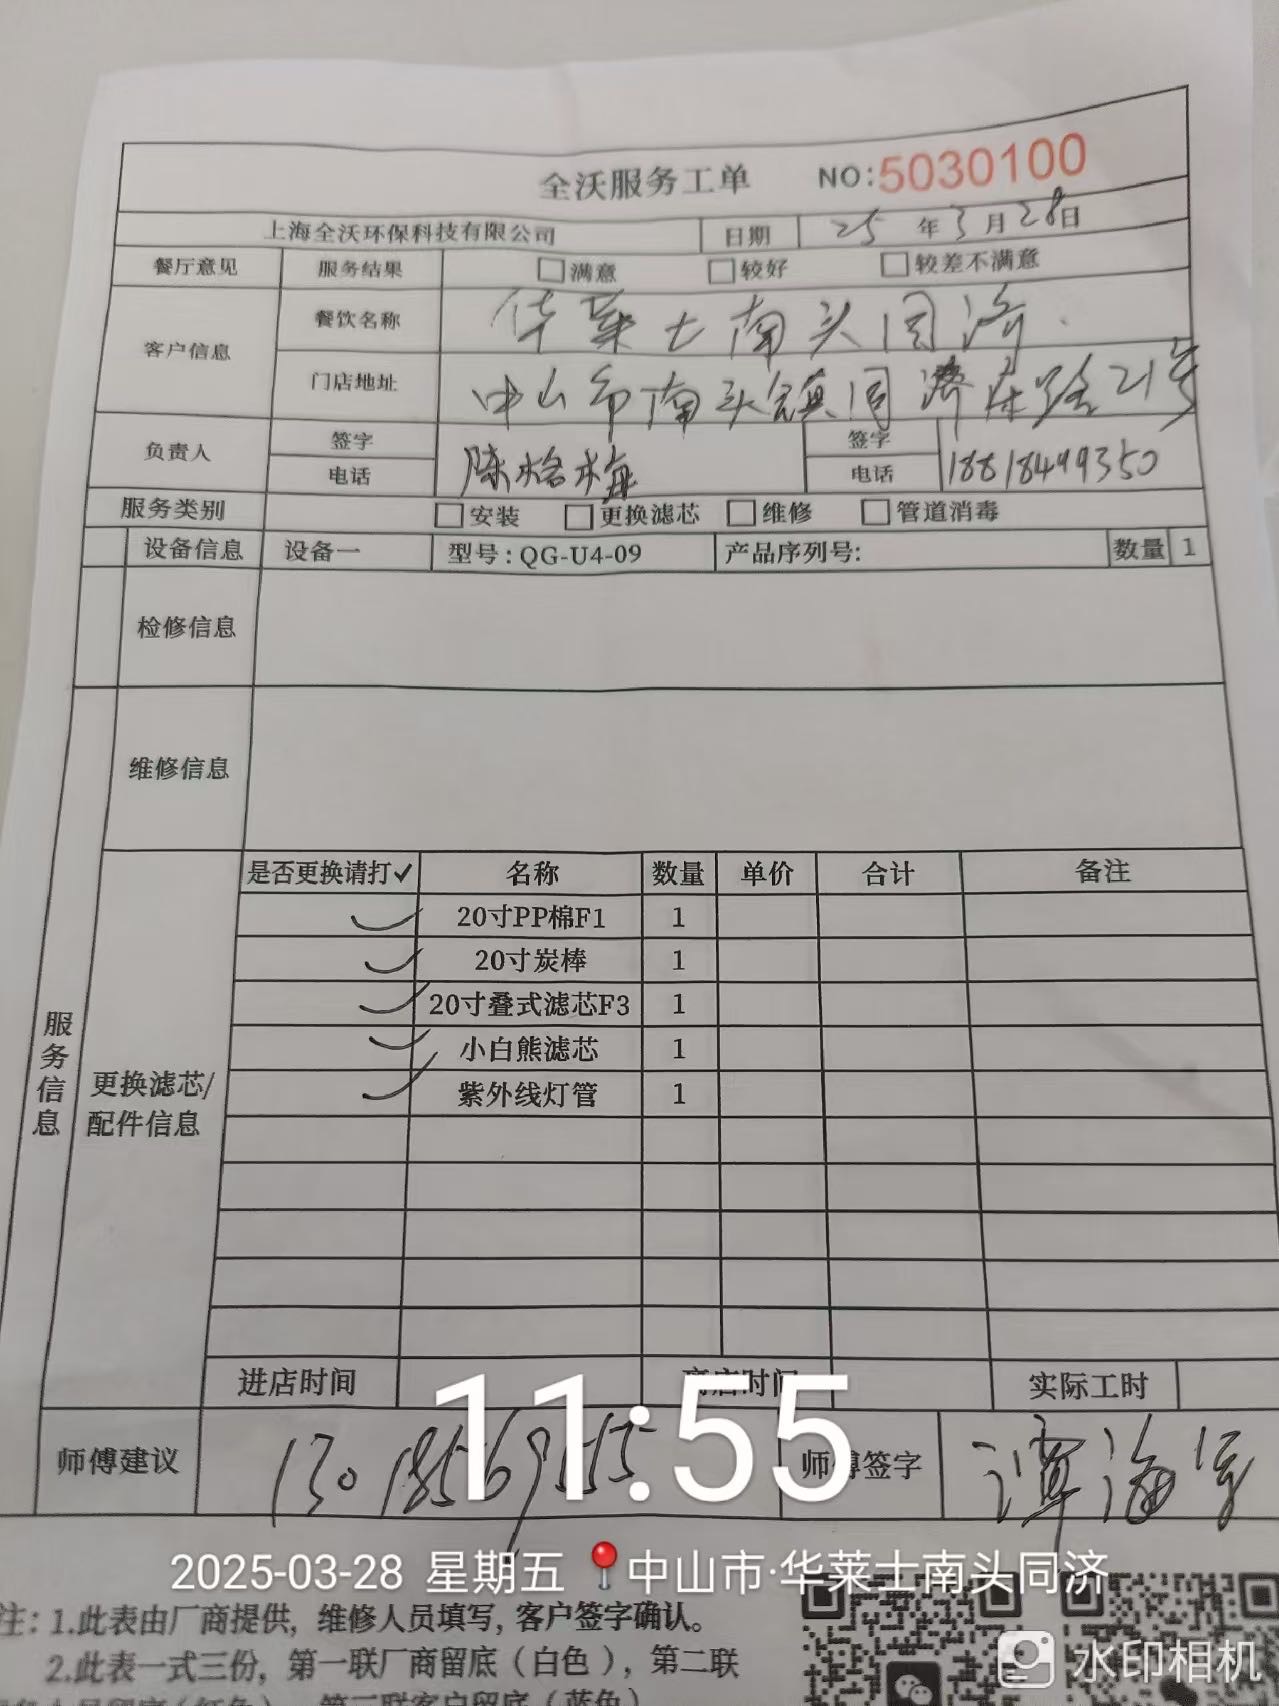 全沃服务工单 NO:5030100
上海全沃环保科技有限公司 日期 25年3月28日
餐厅意见 服务结果 □满意 □较好 □较差不满意
客户信息 餐饮名称 华莱士南头同济
门店地址 中山市南头镇同济东路21号
负责人 签字 陈格梅 签字
电话 电话 18818499350
服务类别 □安装 □更换滤芯 □维修 □管道消毒
设备信息 设备一 型号:QG-U4-09 产品序列号: 数量 1
检修信息
维修信息
服务信息
更换滤芯/
配件信息
是否更换请打✓ 名称 数量 单价 合计 备注
✓ 20寸PP棉F1 1
✓ 20寸炭棒 1
✓ 20寸叠式滤芯F3 1
✓ 小白熊滤芯 1
✓ 紫外线灯管 1
进店时间 离店时间 实际工时
11:55
师傅建议 师傅签字 谭海
2025-03-28 星期五 中山市·华莱士南头同济
注: 1.此表由厂商提供, 维修人员填写, 客户签字确认。
2.此表一式三份, 第一联厂商留底（白色）, 第二联
水印相机